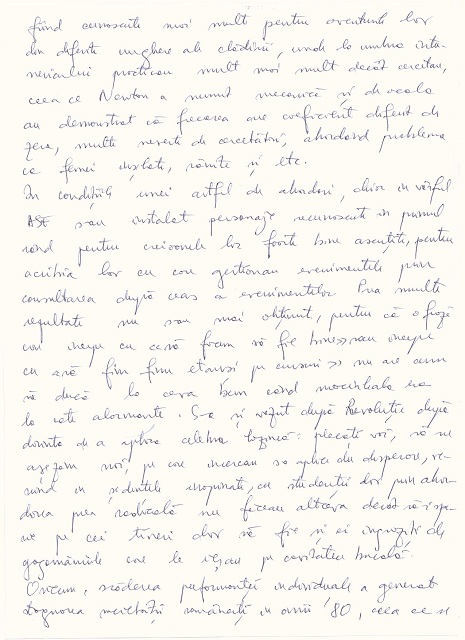 fiind cunoscute mai mult pentru aventurile lor
din diferite unghere ale clădirii, unde la umbra intu-
nericului practicau mult mai mult decât cercetau,
ceea ce Newton a numit mecanică și de acolo
au demonstrat că frecarea are coeficient diferit de
zero, mulți neveste de cercetători, abordând problema
ca femei inșelate, rănite și etc.
În condițiile unei astfel de abordări, chiar in vârful
s-au instalat personaje recunoscute in primul
rând pentru creioanele lor foarte bine ascuțite, pentru
acribia lor cu care gestionau evenimentele prin
consultarea după ceas a evenimentelor. Prea multe
rezultate nu s-au mai obținut, pentru că o frază
care incepe cu "că să facem să fie bine" sau incepe
cu să fim fim etanși pe cursuri nu are cum
să ducă la ceva bun când mediocritatea era
la cote alarmante. S-a și văzut după Revoluție după
dorința de a aplica celebra lozincă: plecați voi, să ne
așezăm noi, pe care incercau s-o aplice din disperare, ve-
nind in ședințele inopinate, cu studenții lor prin abor-
darea prea radicală nu făceau altceva decât să-i spe-
rie pe cei tineri doar să fie și ei ingroziți de
gogomăniile care le ieșeau pe cavitatea bucală.
Oricum, scăderea performanței individuale a generat
stagnarea societății românești in anii '80, ceea ce s-a